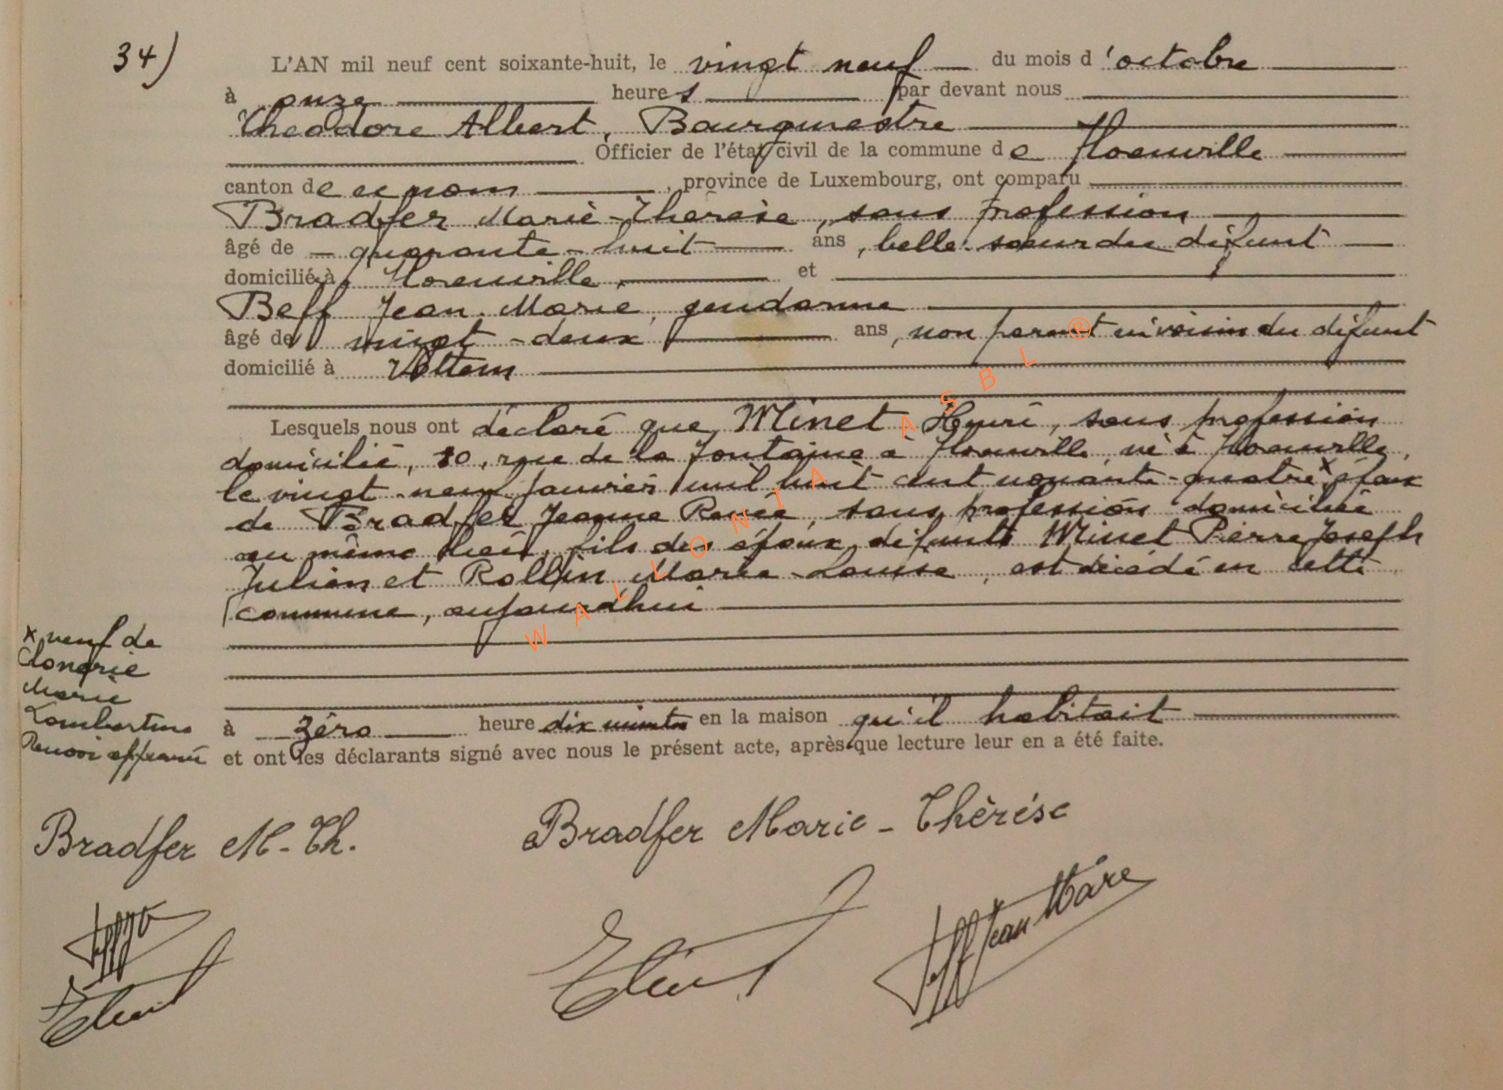 34)
L'AN mil neuf cent soixante-huit, le vingt neuf du mois d'octobre
à onze heures par devant nous
Théodore Albert, Bourgmestre
Officier de l'état civil de la commune de
canton de ce nom, province de Luxembourg, ont comparu
Bradfer Marie-Thérèse, sans profession
âgé de quarante-huit ans, belle-soeur du défunt
domicilié à et
Beff Jean-Marie, gendarme
âgé de vingt-deux ans, non parent ni voisin du défunt
domicilié à Vottem
Lesquels nous ont déclaré que Minet Henri, sans profession
domicilié, 10, rue de la Fontaine à né à
le vingt-neuf janvier mil huit cent nonante-quatre x époux
de Bradfer Jeanne Renée, sans profession domiciliée
au même lieu, fils des époux défunts Minet Pierre Joseph
Julien et Rollin Marie-Louise, est décédé en cette
commune, aujourd'hui
x veuf de
Marie
Lambertine
Renvoi approuvé
à zéro heure dix minutes en la maison qu'il habitait
et ont les déclarants signé avec nous le présent acte, après que lecture leur en a été faite.
Bradfer M-Th.
Bradfer Marie-Thérèse
Beff Jean Marie
WALLONIA ASBL ®